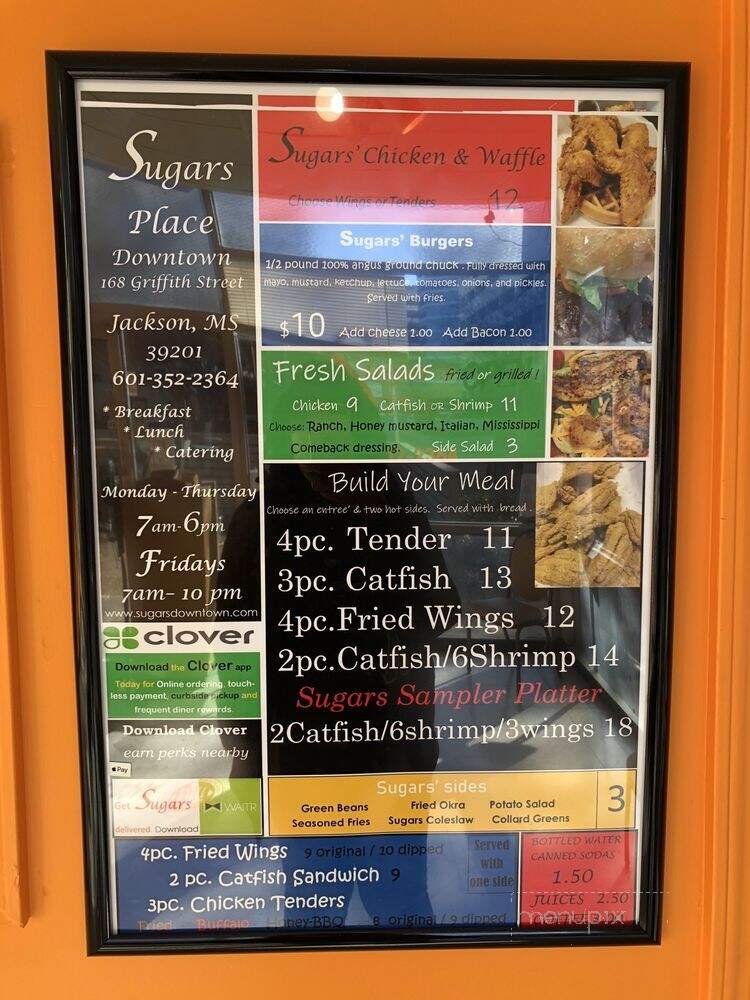 Sugars
Place
Downtown
168 Griffith Street
Jackson, MS
39201
601-352-2364
* Breakfast
* Lunch
* Catering
Monday - Thursday
7am-6pm
Fridays
7am- 10 pm
www.sugarsdowntown.com
clover
Download the Clover app
Today for Online ordering, touch-
less payment, curbside pickup and
frequent diner rewards.
Download Clover
earn perks nearby
Pay
Get Sugars WAITR
delivered. Download
Sugars' Chicken & Waffle
Choose Wings or Tenders 12
Sugars' Burgers
1/2 pound 100% angus ground chuck . Fully dressed with
mayo, mustard, ketchup, lettuce, tomatoes, onions, and pickles.
Served with fries.
$10 Add cheese 1.00 Add Bacon 1.00
Fresh Salads fried or grilled !
Chicken 9 Catfish OR Shrimp 11
Choose: Ranch, Honey mustard, Italian, Mississippi
Comeback dressing. Side Salad 3
Build Your Meal
Choose an entree' & two hot sides. Served with bread .
4pc. Tender 11
3pc. Catfish 13
4pc.Fried Wings 12
2pc.Catfish/6Shrimp 14
Sugars Sampler Platter
2Catfish/6shrimp/3wings 18
Sugars' sides
Green Beans Fried Okra Potato Salad
Seasoned Fries Sugars Coleslaw Collard Greens
3
4pc. Fried Wings 9 original / 10 dipped
2 pc. Catfish Sandwich 9
3pc. Chicken Tenders
Fried Buffalo Honey-BBQ 8 original / 9 dipped
Served
with
one side
BOTTLED WATER
CANNED SODAS
1.50
JUICES 2.50
menupix